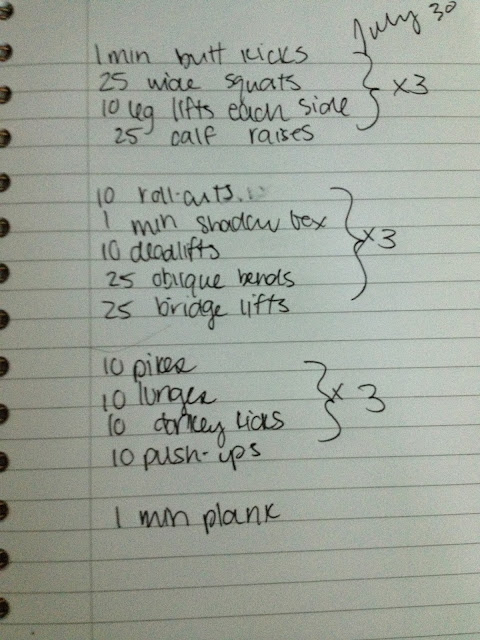 July 30
1 min butt kicks
25 wide squats
10 leg lifts each side
25 calf raises
x3
10 roll-outs
1 min shadow box
10 deadlifts
25 oblique bends
25 bridge lifts
x3
10 pikes
10 lunges
10 donkey kicks
10 push-ups
x 3
1 min plank